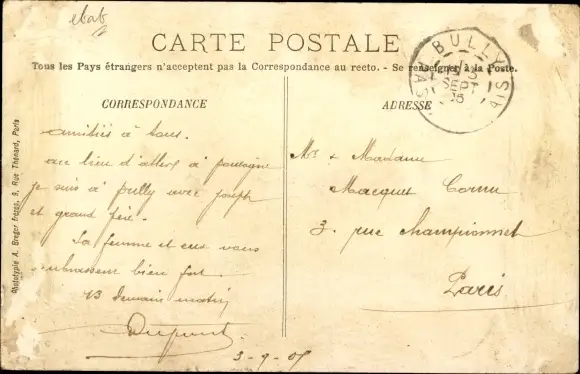 ebab
CARTE POSTALE
Tous les Pays étrangers n'acceptent pas la Correspondance au recto. - Se renseigner à la Poste.
BULLY
CORRESPONDANCE
ADRESSE
amitiés à tous.
au lieu d'aller à
je suis à Bully avec joseph
et grand père.
La femme et vous
embrassent bien fort.
demain matin
Dupont
3-9-05
Mr & Madame
Macquet Cornu
3. rue championnet
Paris
Phototypie A. Breger frères, 9, Rue Thénard, Paris